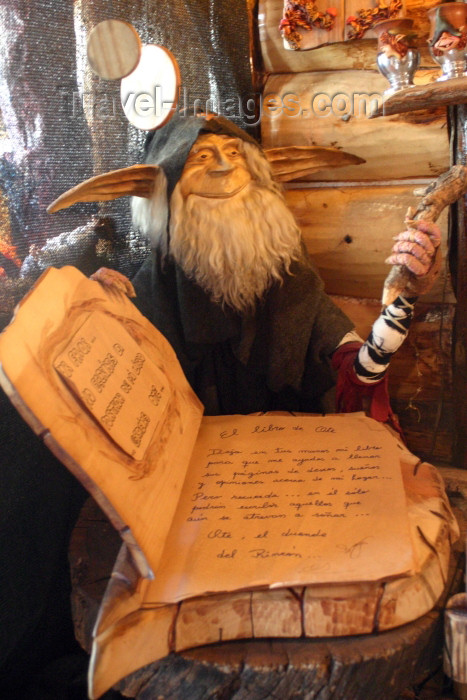 Travel-Images.com
El libro de Oté
Dejo en tus manos mi libro
para que me ayudes a llenar
sus páginas de deseos, sueños
y opiniones acerca de mi hogar...
Pero recuerda... en él sólo
podrán escribir aquellos que
aún se atrevan a soñar...
Oté, el duende
del Rincón...